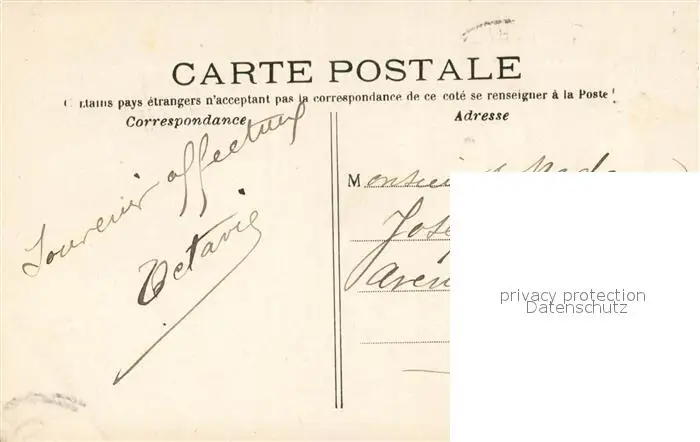 CARTE POSTALE
Certains pays étrangers n'acceptant pas la correspondance de ce coté se renseigner à la Poste
Correspondance
Souvenir affectueux
Octavie
Adresse
Monsieur et Mada
José
aven
privacy protection
Datenschutz